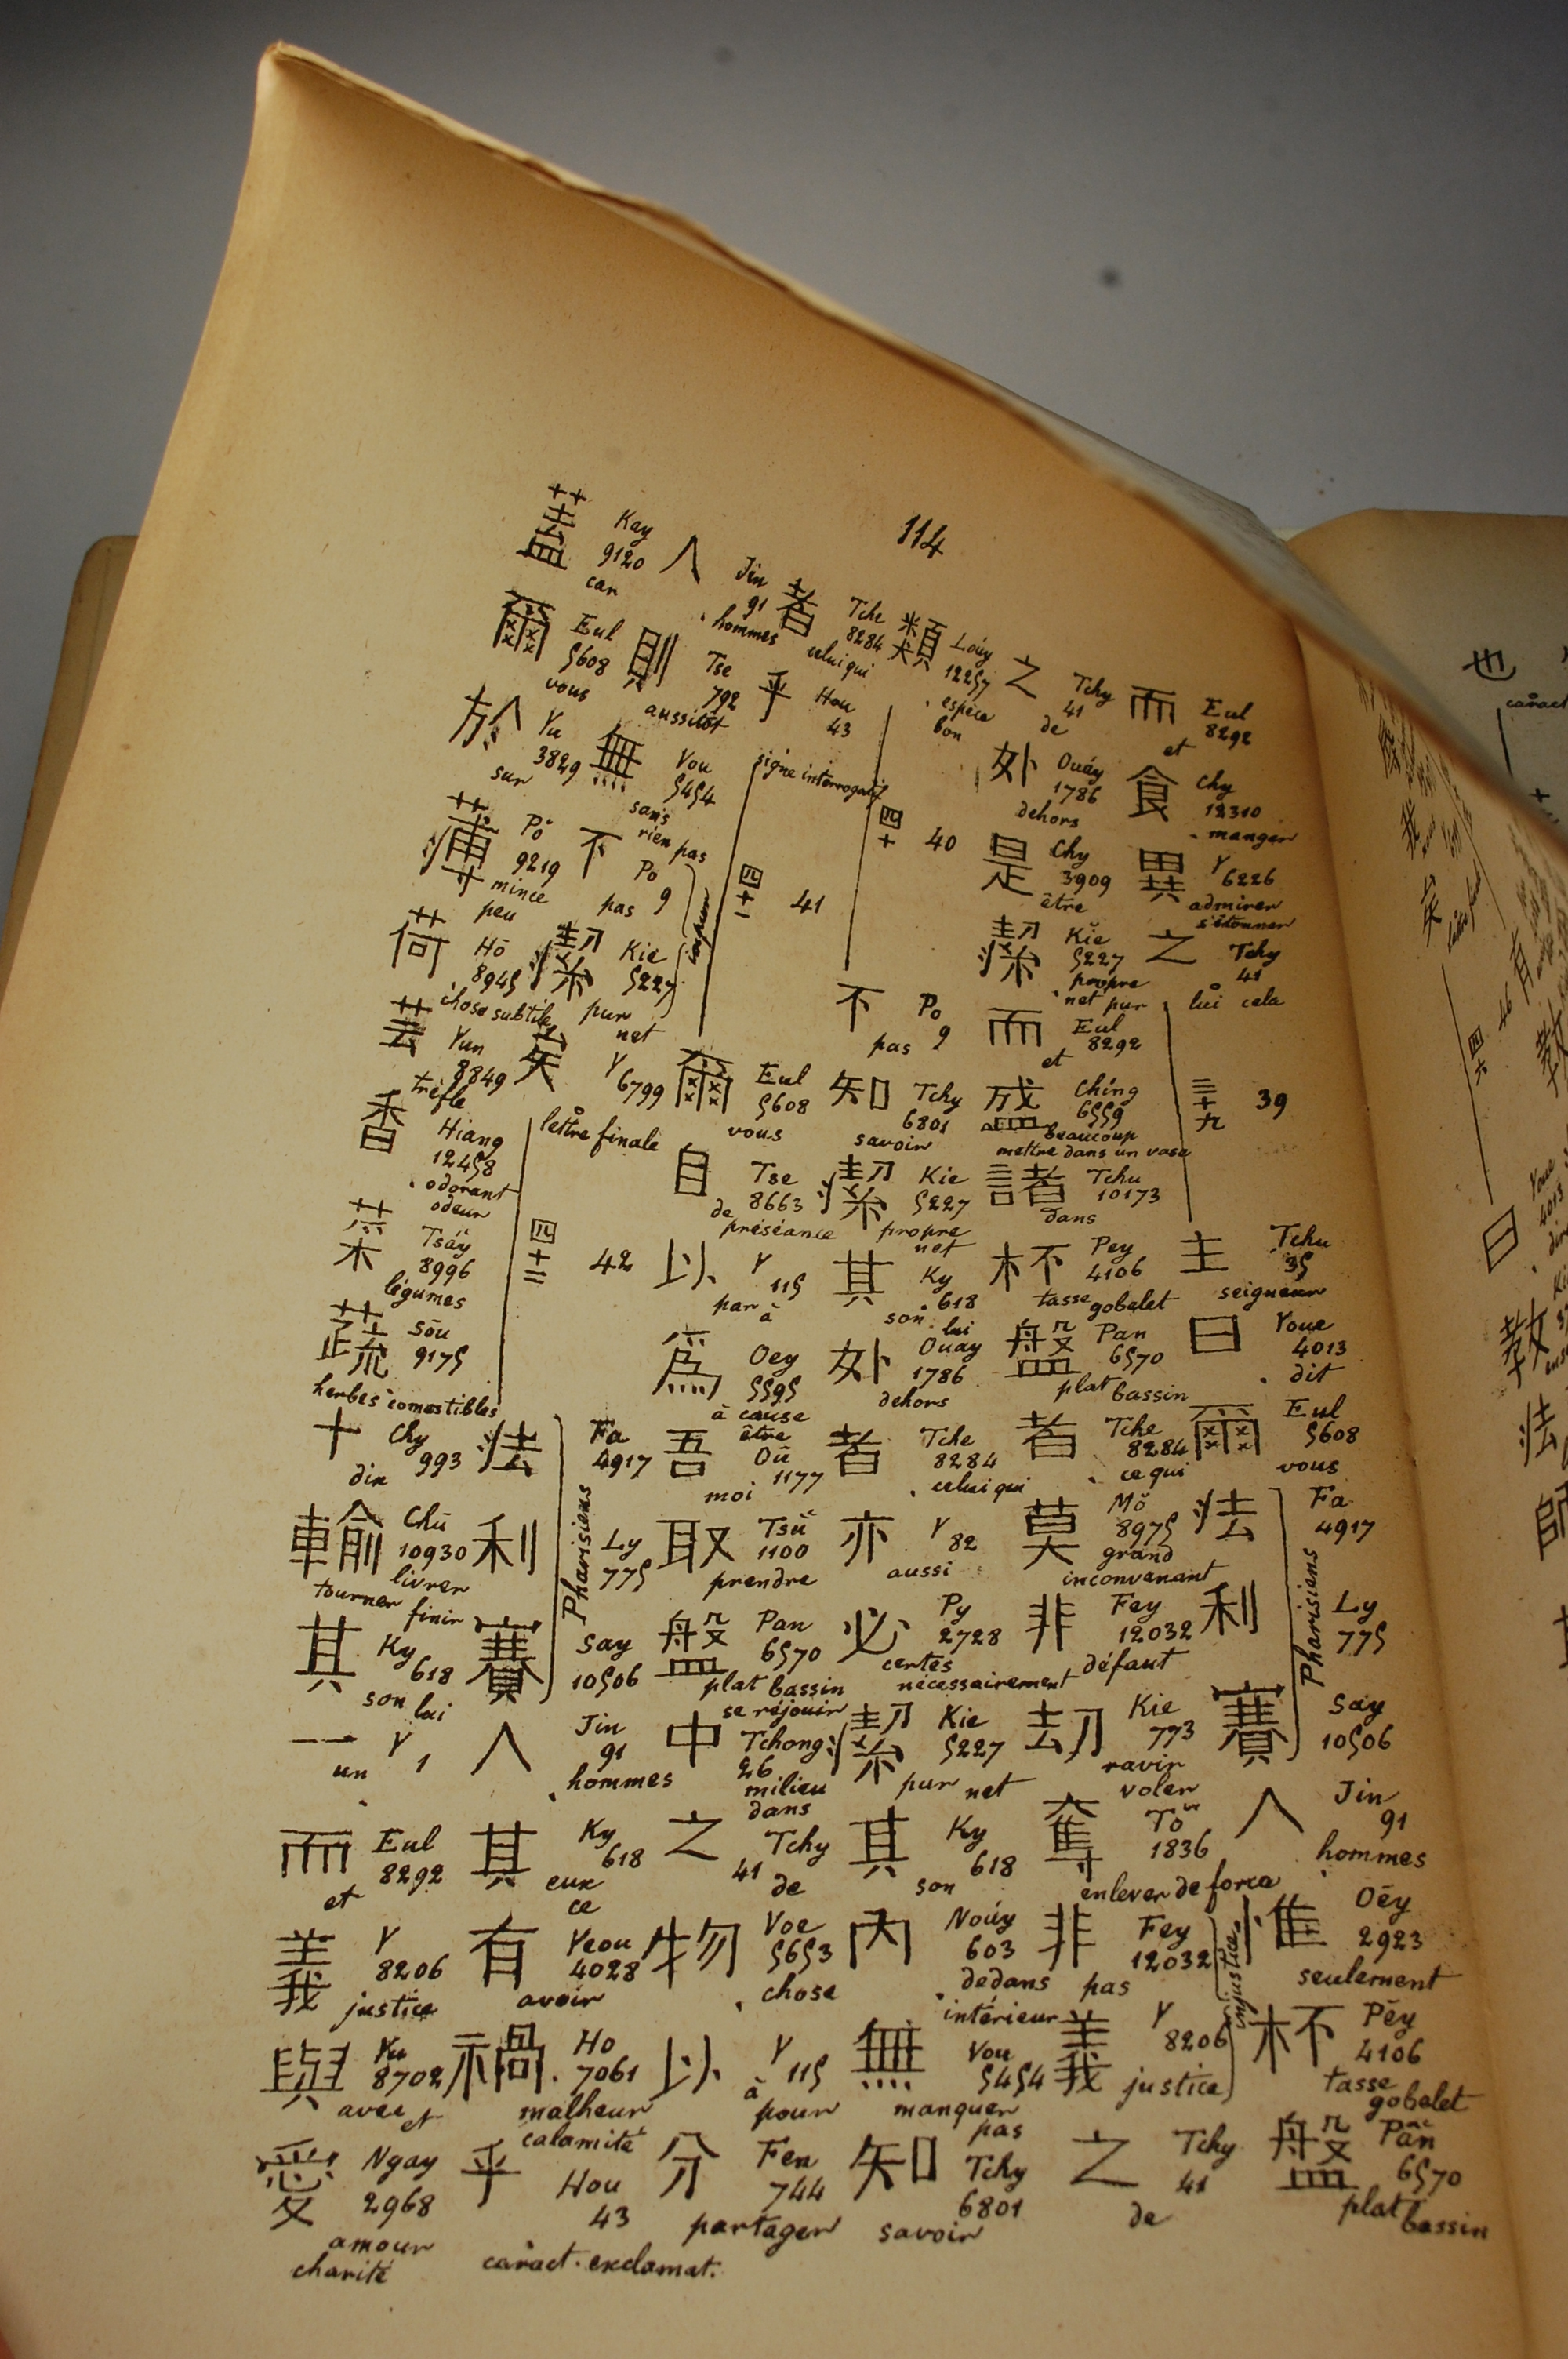 114
而 Eul 8292 et
食 Chy 12310 manger
異 Y 6226 admirer s'étonner
之 Tchy 41 lui cela
三十九 39
主 Tchu 35 seigneur
曰 Youe 4013 dit
爾 Eul 5608 vous
法 Fa 4917
利 Ly 775
賽 Say 10506
Pharisiens
人 Jin 91 hommes
惟 Oêy 2923 seulement
杯 Pēy 4106 tasse gobelet
盤 Pân 6570 plat bassin
之 Tchy 41 de
外 Ouáy 1786 dehors
是 Chy 3909 être
潔 Kĭe 5227 propre net pur
而 Eul 8292 et
盛 Chíng 6559 beaucoup mettre dans un vase
諸 Tchu 10173 dans
杯 Pey 4106 tasse gobelet
盤 Pan 6570 plat bassin
者 Tche 8284 ce qui
莫 Mŏ 8975 grand inconvenant
非 Fey 12032 défaut
刧 Kie 773 ravir voler
奪 Tŏ 1836 enlever de force
非 Fey 12032 pas
義 Y 8206 justice
injustice
之 Tchy 41 de
類 Loúy 12257 espèce bon
四十 40
不 Po 9 pas
知 Tchy 6801 savoir
潔 Kie 5227 propre net
其 Ky 618 son lui
外 Ouay 1786 dehors
者 Tche 8284 celui qui
亦 Y 82 aussi
必 Py 2728 certes nécessairement
潔 Kie 5227 pur net
其 Ky 618 son
內 Noúy 603 dedans intérieur
無 Vou 5454 manquer pas
知 Tchy 6801 savoir
者 Tche 8284 celui qui
乎 Hou 43 signe interrogatif
四十一 41
爾 Eul 5608 vous
自 Tse 8663 de préséance
以 Y 115 par à
為 Oey 5595 à cause être
吾 Oū 1177 moi
取 Tsŭ 1100 prendre
盤 Pan 6570 plat bassin se réjouir
中 Tchong 26 milieu dans
之 Tchy 41 de
物 Voe 5653 chose
以 Y 115 à pour
分 Fen 744 partager
人 Jin 91 hommes
則 Tse 792 aussitôt
無 Vou 5454 sans rien pas
不 Po 9 pas
潔 Kie 5227 pur net
impur
矣 Y 6799 lettre finale
四十二 42
法 Fa 4917
利 Ly 775
賽 Say 10506
Pharisiens
人 Jin 91 hommes
其 Ky 618 eux ce
有 Yeou 4028 avoir
禍 Ho 7061 malheur calamité
乎 Hou 43 caract. exclamat.
蓋 Kay 9120 car
爾 Eul 5608 vous
於 Yu 3829 sur
薄 Pŏ 9219 mince peu
荷 Hō 8945 chose subtile
芸 Yun 8849 trèfle
香 Hiang 12458 odorant odeur
菜 Tsáy 8996 légumes
蔬 Sōu 9175 herbes comestibles
十 Chy 993 dix
輸 Chū 10930 livrer tourner finir
其 Ky 618 son lui
一 Y 1 un
而 Eul 8292 et
義 Y 8206 justice
與 Yu 8702 avec et
愛 Ngay 2968 amour charité
也
caract
四十六 46
有
教
曰
教
法
師